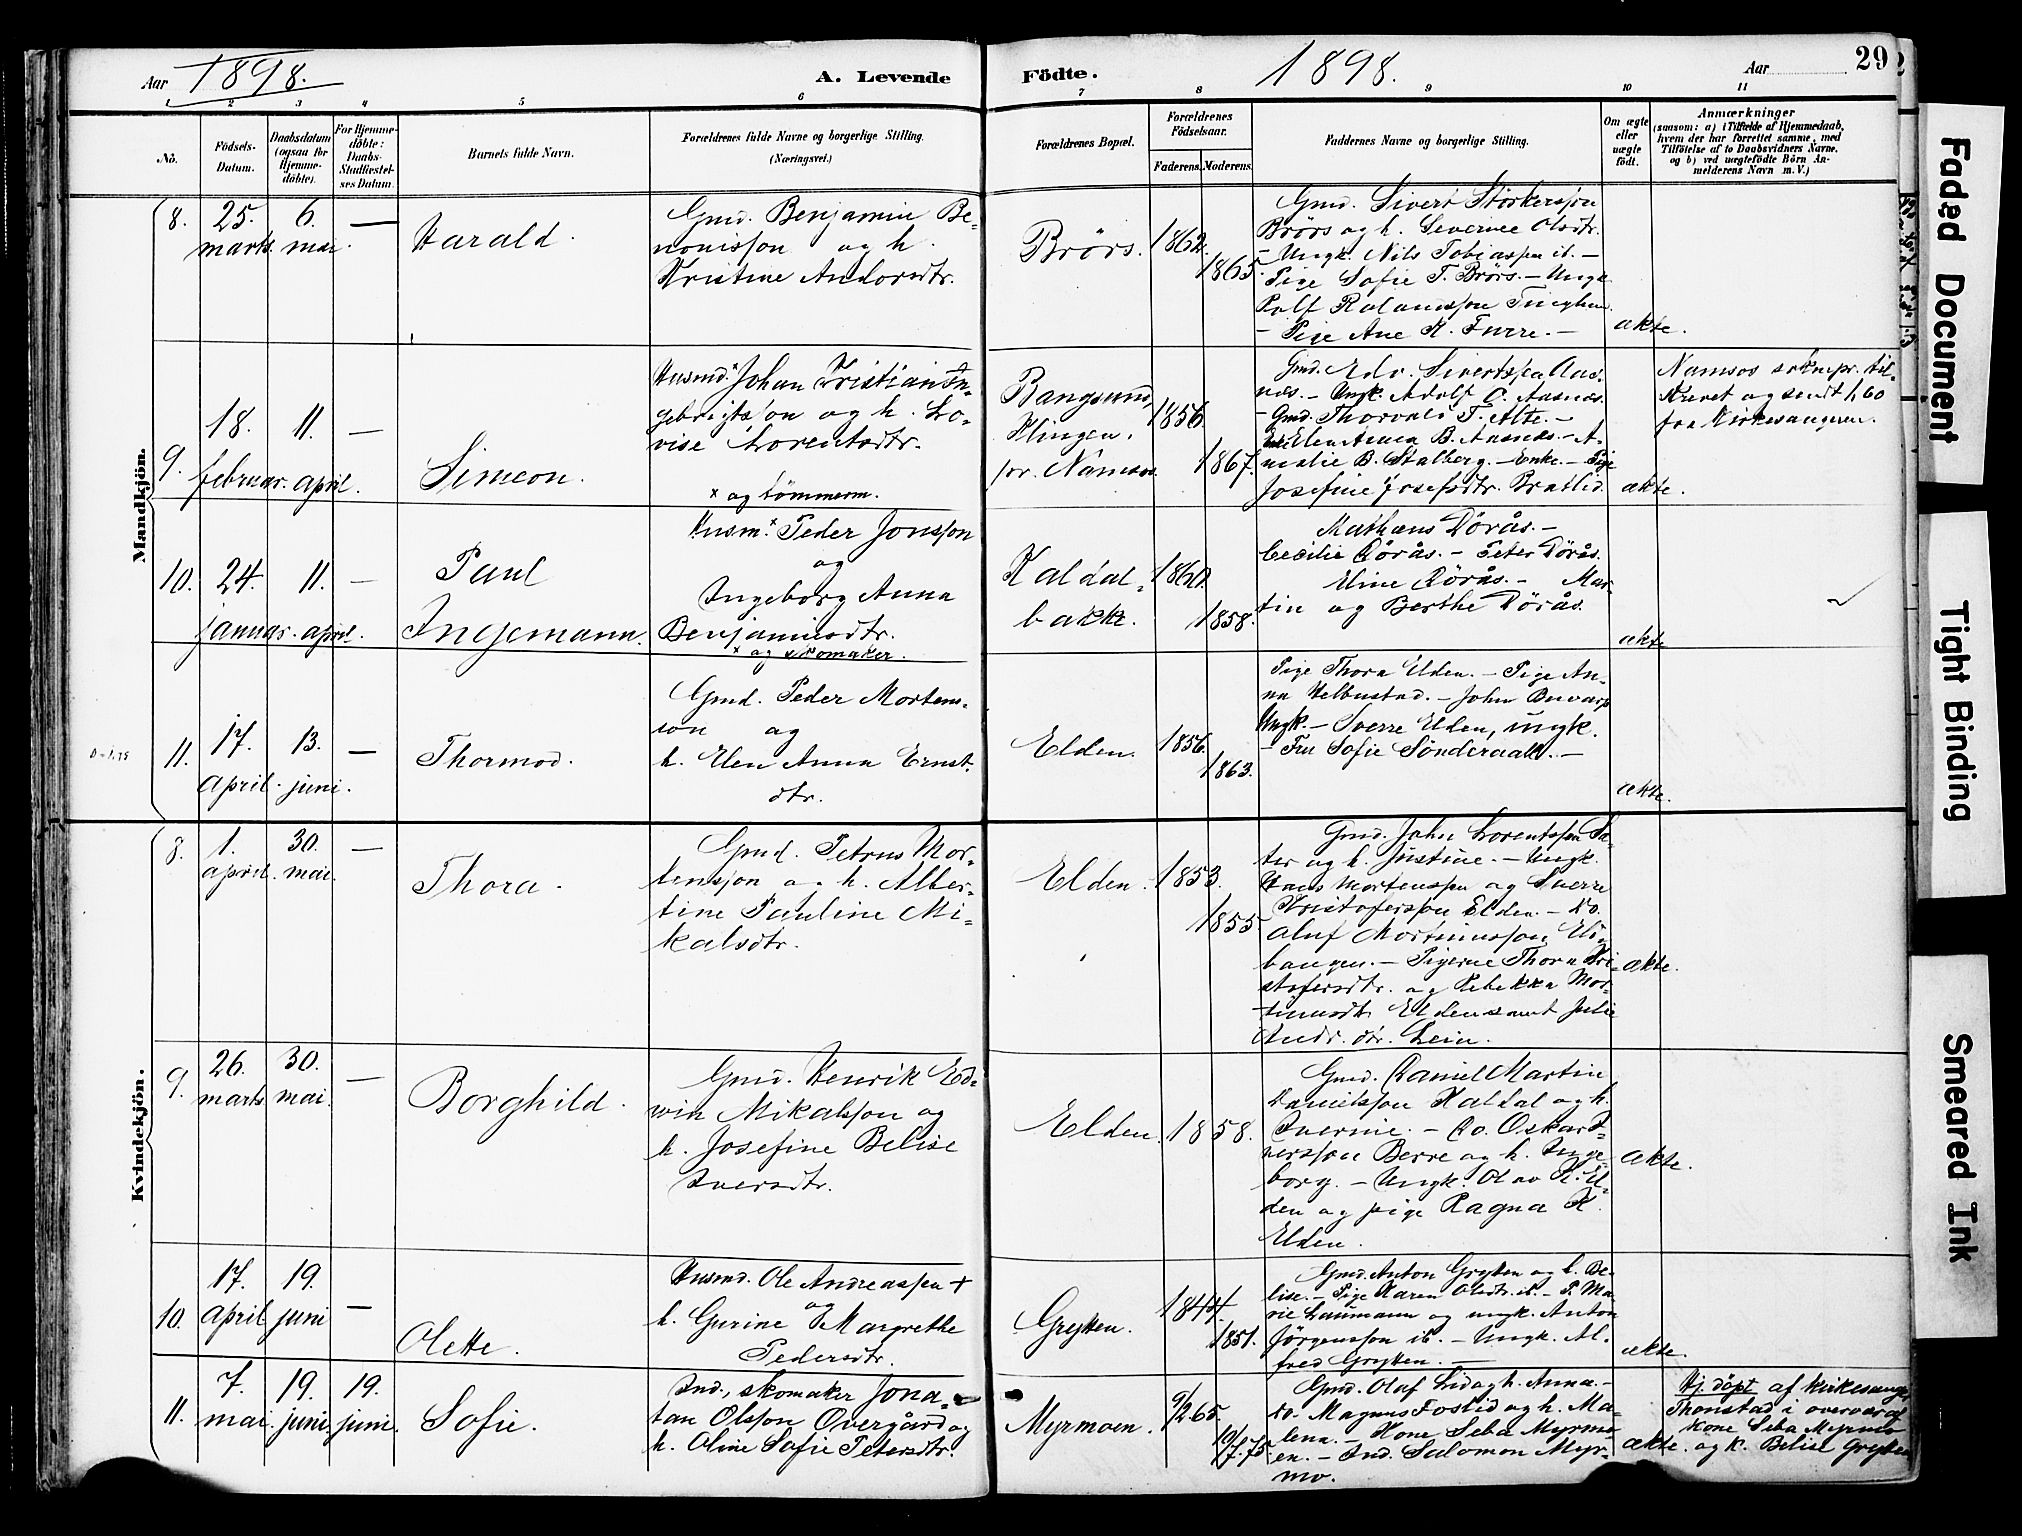 Aar 1898.
A. Levende
Födte.
1898.
Aar
29
1 2 3 4 5 6 7 8 9 10 11
No.
Födsels-
Datum.
Daabsdatum
(ogsaa for
Hjemme-
døbte).
For Hjemme-
döbte:
Daabs-
Stadfæstel-
ses Datum.
Barnets fulde Navn.
Forældrenes fulde Navne og borgerlige Stilling.
(Næringsvei.)
Forældrenes Bopæl.
Forældrenes
Födselsaar.
Faderens. Moderens.
Faddernes Navne og borgerlige Stilling.
Om ægte
eller
uægte
født.
Anmærkninger
(saasom: a) i Tilfælde af Hjemmedaab,
hvem der har forrettet samme, med
Tilføielse af to Daabsvidners Navne,
og b) ved uægtefødte Börn An-
melderens Navn m. V.)
Mandkjön.
8.
25.
marts
6.
mai.
—
Harald.
Gmd. Benjamin Be-
nonisson og h.
Kristine Andorsdtr.
Brörs.
1862.
1865.
Gmd. Sivert Störkersson
Brörs og h. Severnee Olsdtr.
– Ungk. Nils Tobiassen ib. –
Pige Sofie T. Brörs. – Ungk.
Rolf Rolandsson
– Pige Ane K. Furre. –
ækte.
9.
18.
februar.
11.
april.
—
Simeon.
Husmd.x Johan Kristian In-
gebrigtsson og h. Lo-
vise Lorentsdtr.
x og tömmerm.
Bangsund,
Klingen,
pr. Namsos.
1856
1867.
Gmd. Edv. Sivertsen Aas-
næs. – Ungk. Adolf O. Aasnæs.
– Gmd. Thorvald T. Alte. –
Elen Anna B. Aasnæs. – A-
malie B. Stalberg. – Enke. – Pige
Josefine Josefsdtr. Bratlid.
ækte.
Namsos soknepr. til-
skrevet og sendt 1,60
fra Kirkesangeren.
10.
24.
januar.
11.
april.
—
Paul
Ingemann.
Husm.x Peder Jonsson
og
Ingeborg Anna
Benjaminsdtr.
x og skomaker.
Kaldal-
bakk.
1860.
1858.
Mathæus Dörås. –
Cecilie Dörås. – Peter Dörås.
Eline Dörås. – Mar-
tin og Berthe Dörås.
ækte
11.
17.
april.
13.
juni.
—
Thormod.
Gmd. Peder Mortens-
son og
h. Elen Anna Ernst-
dtr.
Elden.
1856.
1863.
Pige Thora Elden. – Pige An-
na Helbustad. – John Buvarp
Ungk. – Sverre Elden, ungk.
– Fru Sofie Sönderaal. –
ækte.
Kvindekjön.
8.
1.
april.
30.
mai.
—
Thora.
Gmd. Petrus Mor-
tensson og h. Alber-
tine Pauline Mi-
kalsdtr.
Elden.
1853.
1855.
Gmd. John Lorentssen Sæ-
ter og h. Justine. – Ungk.
Hans Mortenssen og Sverre
Kristofersson Elden. – Do.
Oluf Mortinusson, El-
bangen. – Pigerne Thora Kri-
stofersdtr. og Rebekka Mor-
tinusdtr. Elden samt Julie
Andr. dtr. Lein.
ækte.
9.
26.
marts
30.
mai.
—
Borghild.
Gmd. Henrik Ed-
win Mikalsson og
h. Josefine Belise
Iversdtr.
Elden.
1858.
Gmd. Daniel Martin
Danielsson Kaldal og h.
Ivernie. – Do. Oskar I-
versson Berre og h. Inge-
borg. – Ungk. Olav K. El-
den og pige Ragna K.
Elden.
ækte.
10.
17.
april
19.
juni
—
Olette.
Husmd. Ole Andreassen +
og
h. Gurine Margrethe
Pedersdtr.
Grytten.
1844
1851.
Gmd. Anton Grytten og h. Be-
lise. – Pige Karen Olsdtr. ib. – P. Ma-
rie Laumann og ungk. Anton
Jörgensson ib. – Ungk. Al-
fred Grytten. –
ækte.
11.
7.
mai
19.
juni.
19.
juni.
Sofie.
Ind., skomaker Jona-
tan Olsson Overgård og
h. Oline Sofie Petersdtr.
Myrmoen.
9/2 65.
10/7. 75.
Gmd. Olaf Lid og h. Anna. –
Do. Magnus Foslid og h. Ma-
lena. – Kone Seba Myrmo-
en. – Ind. Salomon Myr-
mo.
ækte.
Hj. döpt af kirkesanger
Thonstad i overvær af
Kone Seba Myrmo
og k. Belise Grytten
Faded Document
Tight Binding
Smeared Ink